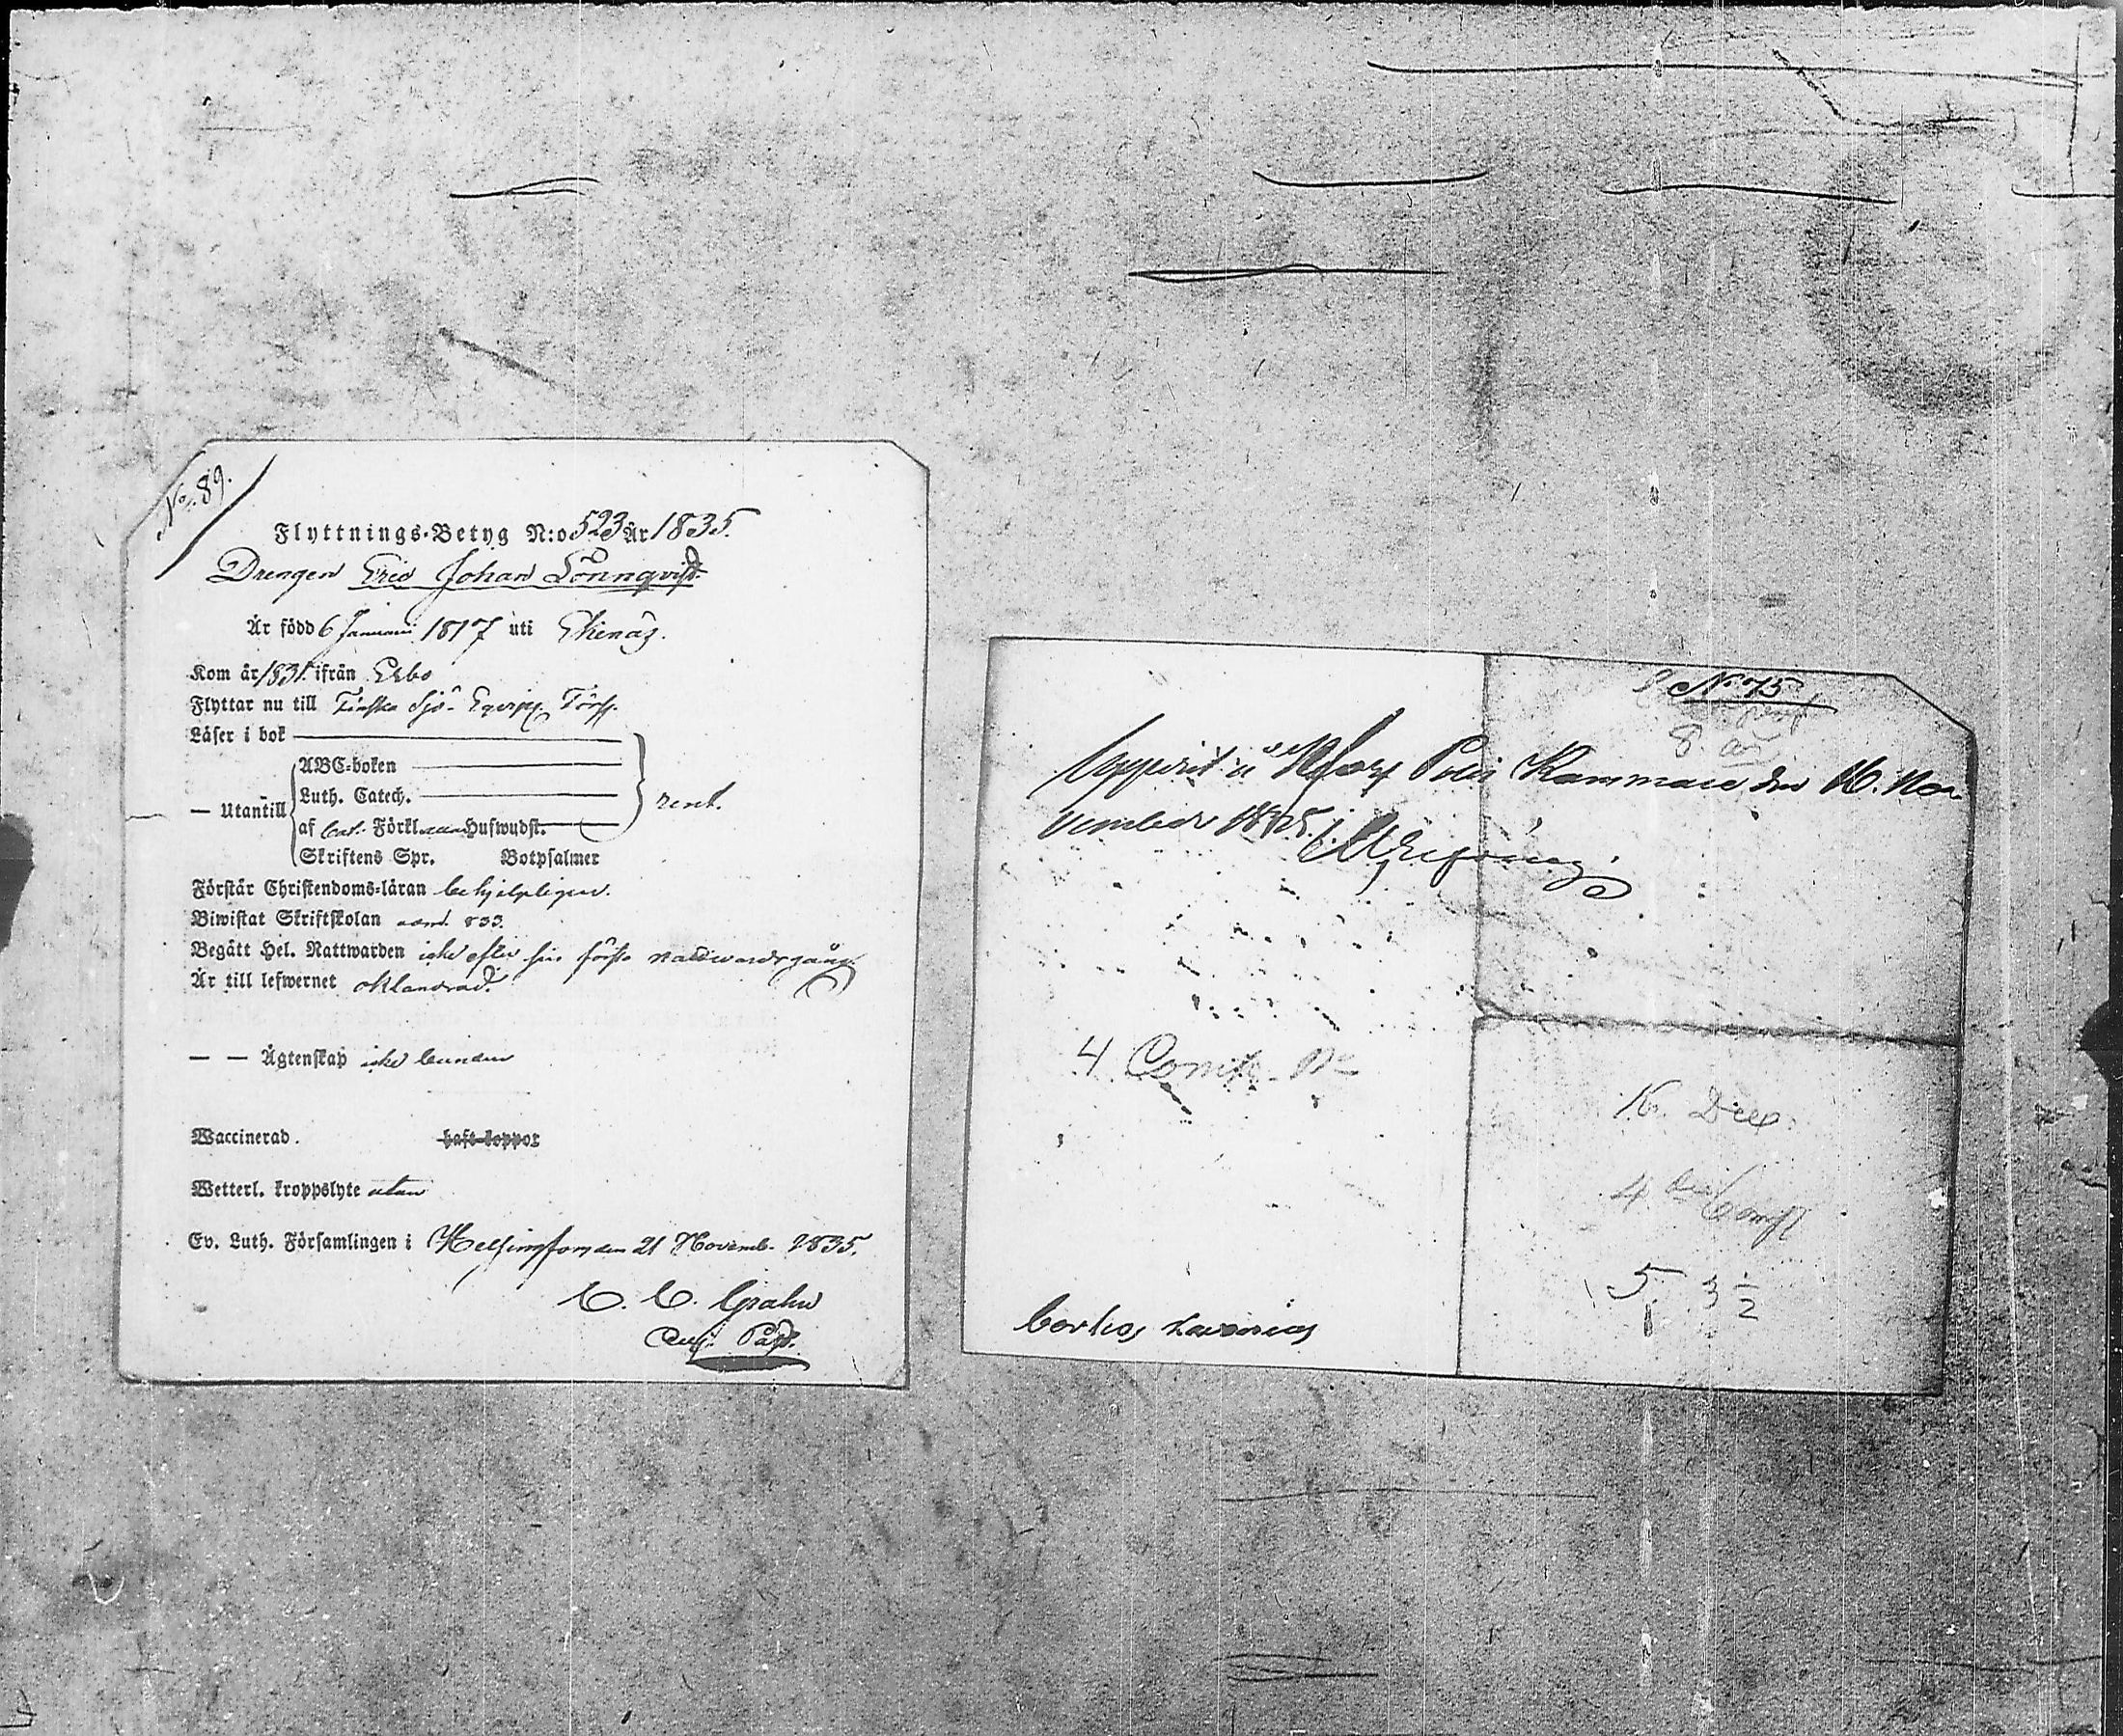 No. 89.
Flyttnings-Betyg N:o 523 År 1835.
Drengen Eric Johan Lönnqvist.
Är född 6 Januarii 1817 uti Ekenäs.
Kom år 1831 ifrån Esbo
Flyttar nu till Finska Sjö-Eqvip. Förs.
Läser i bok
ABC-boken
Luth. Catech.
— Utantill
rent.
af Förkl. Huswudst.
Skriftens Spr. Botpsalmer
Förstår Christendoms-läran behjelpligen.
Biwistat Skriftskolan 833.
Begått Hel. Nattwarden icke efter sin första nattwardsgång.
Är till lefwernet oklandrad.
— — Ägtenskap icke bunden
Waccinerad. haft koppor
Wetterl. kroppslyte utan
Ev. Luth. Församlingen i Helsingfors den 21 Novemb. 1835.
C. C. Grahn
Past.
No 75
8
Uppvist i Polis Kammare den No-
vember 1835.
4 Comp.
4 Comp
5. 3 1/2